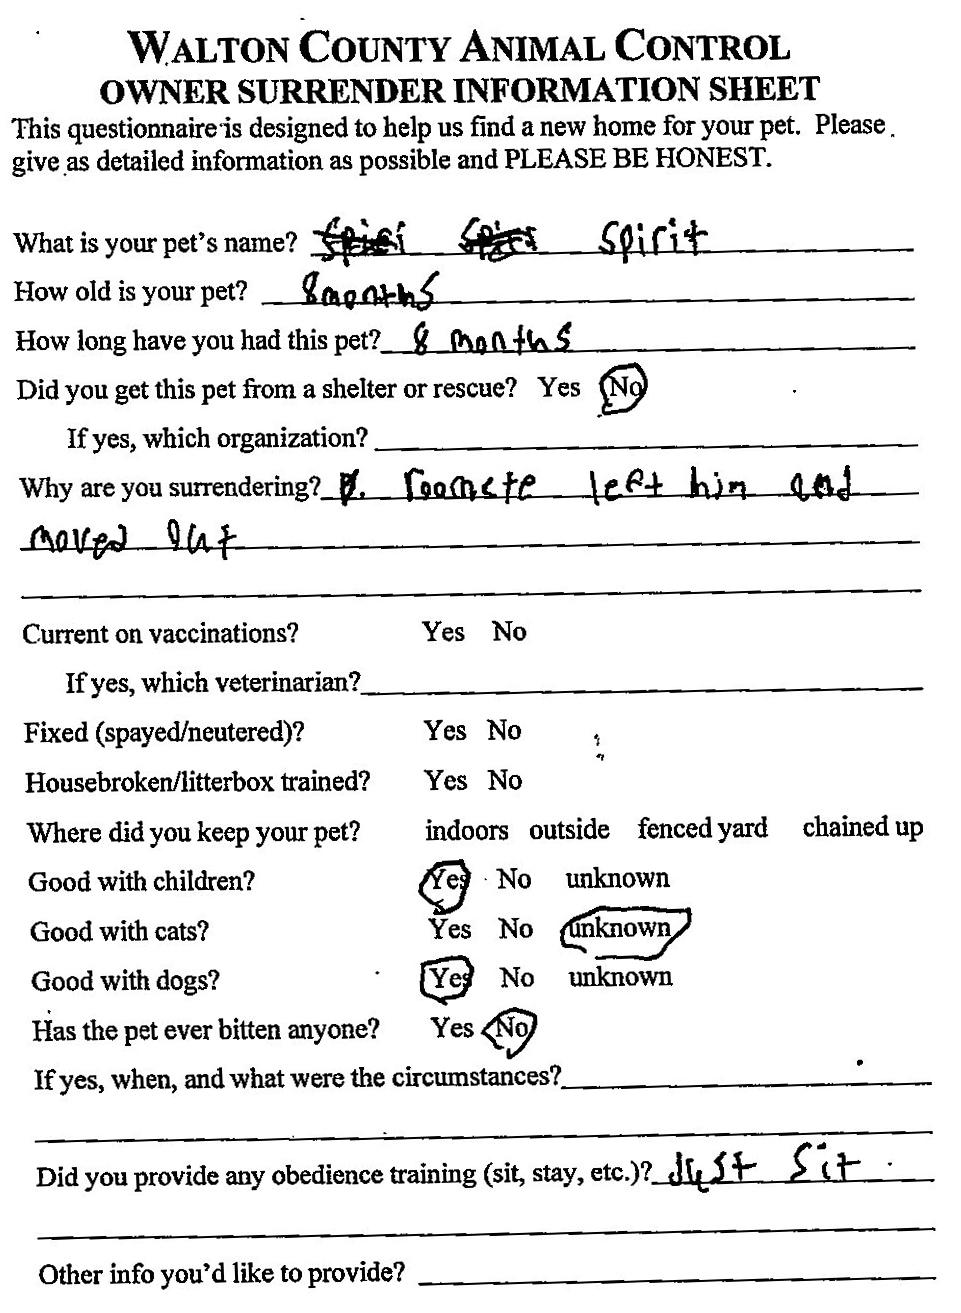 WALTON COUNTY ANIMAL CONTROL
OWNER SURRENDER INFORMATION SHEET
This questionnaire is designed to help us find a new home for your pet. Please
give as detailed information as possible and PLEASE BE HONEST.
What is your pet's name? Spirit
How old is your pet? 8 months
How long have you had this pet? 8 months
Did you get this pet from a shelter or rescue? Yes No
If yes, which organization?
Why are you surrendering? roomete left him and
moved out
Current on vaccinations? Yes No
If yes, which veterinarian?
Fixed (spayed/neutered)? Yes No
Housebroken/litterbox trained? Yes No
Where did you keep your pet? indoors outside fenced yard chained up
Good with children? Yes No unknown
Good with cats? Yes No unknown
Good with dogs? Yes No unknown
Has the pet ever bitten anyone? Yes No
If yes, when, and what were the circumstances?
Did you provide any obedience training (sit, stay, etc.)? Just Sit
Other info you'd like to provide?